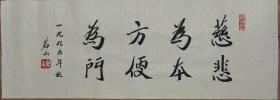 慈悲
為本
方便
為門
一九九五年秋